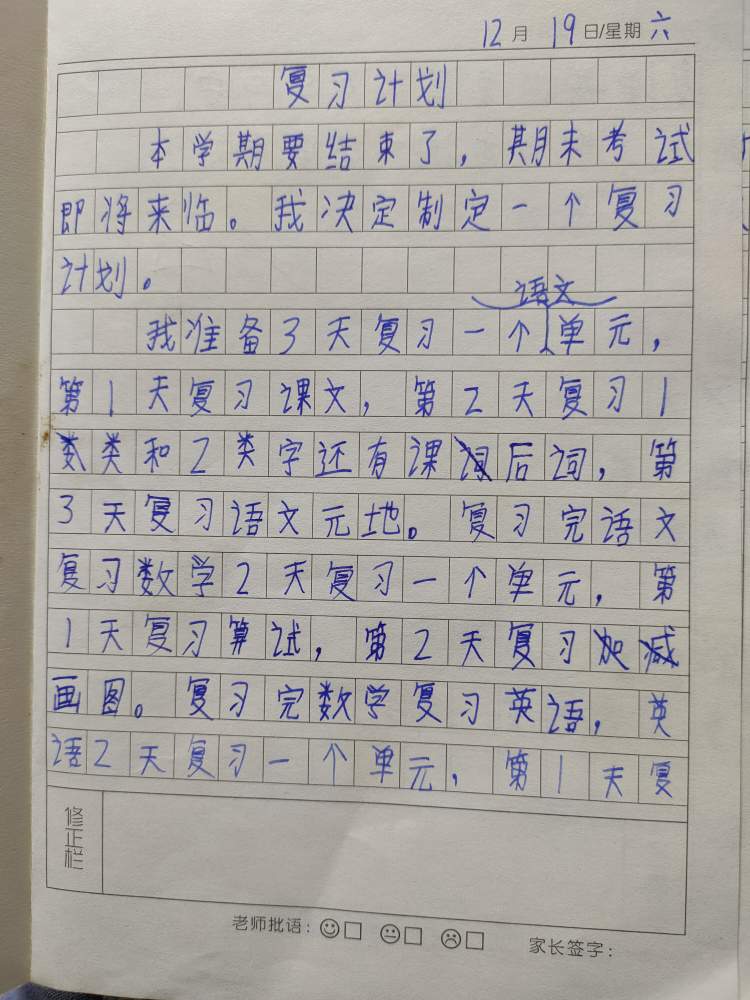 12月19日/星期六
复习计划
本学期要结束了，期末考试
即将来临。我决定制定一个复习
计划。
语文
我准备3天复习一个单元，
第1天复习课文，第2天复习1
类和2类字还有课后词，第
3天复习语文元地。复习完语文
复习数学2天复习一个单元，第
1天复习算试，第2天复习
画图。复习完数学复习英语，英
语2天复习一个单元，第1天复
修正栏
老师批语：
家长签字：